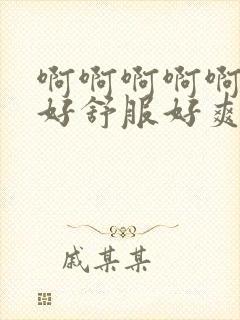 啊啊啊啊啊
好舒服好爽
戚某某